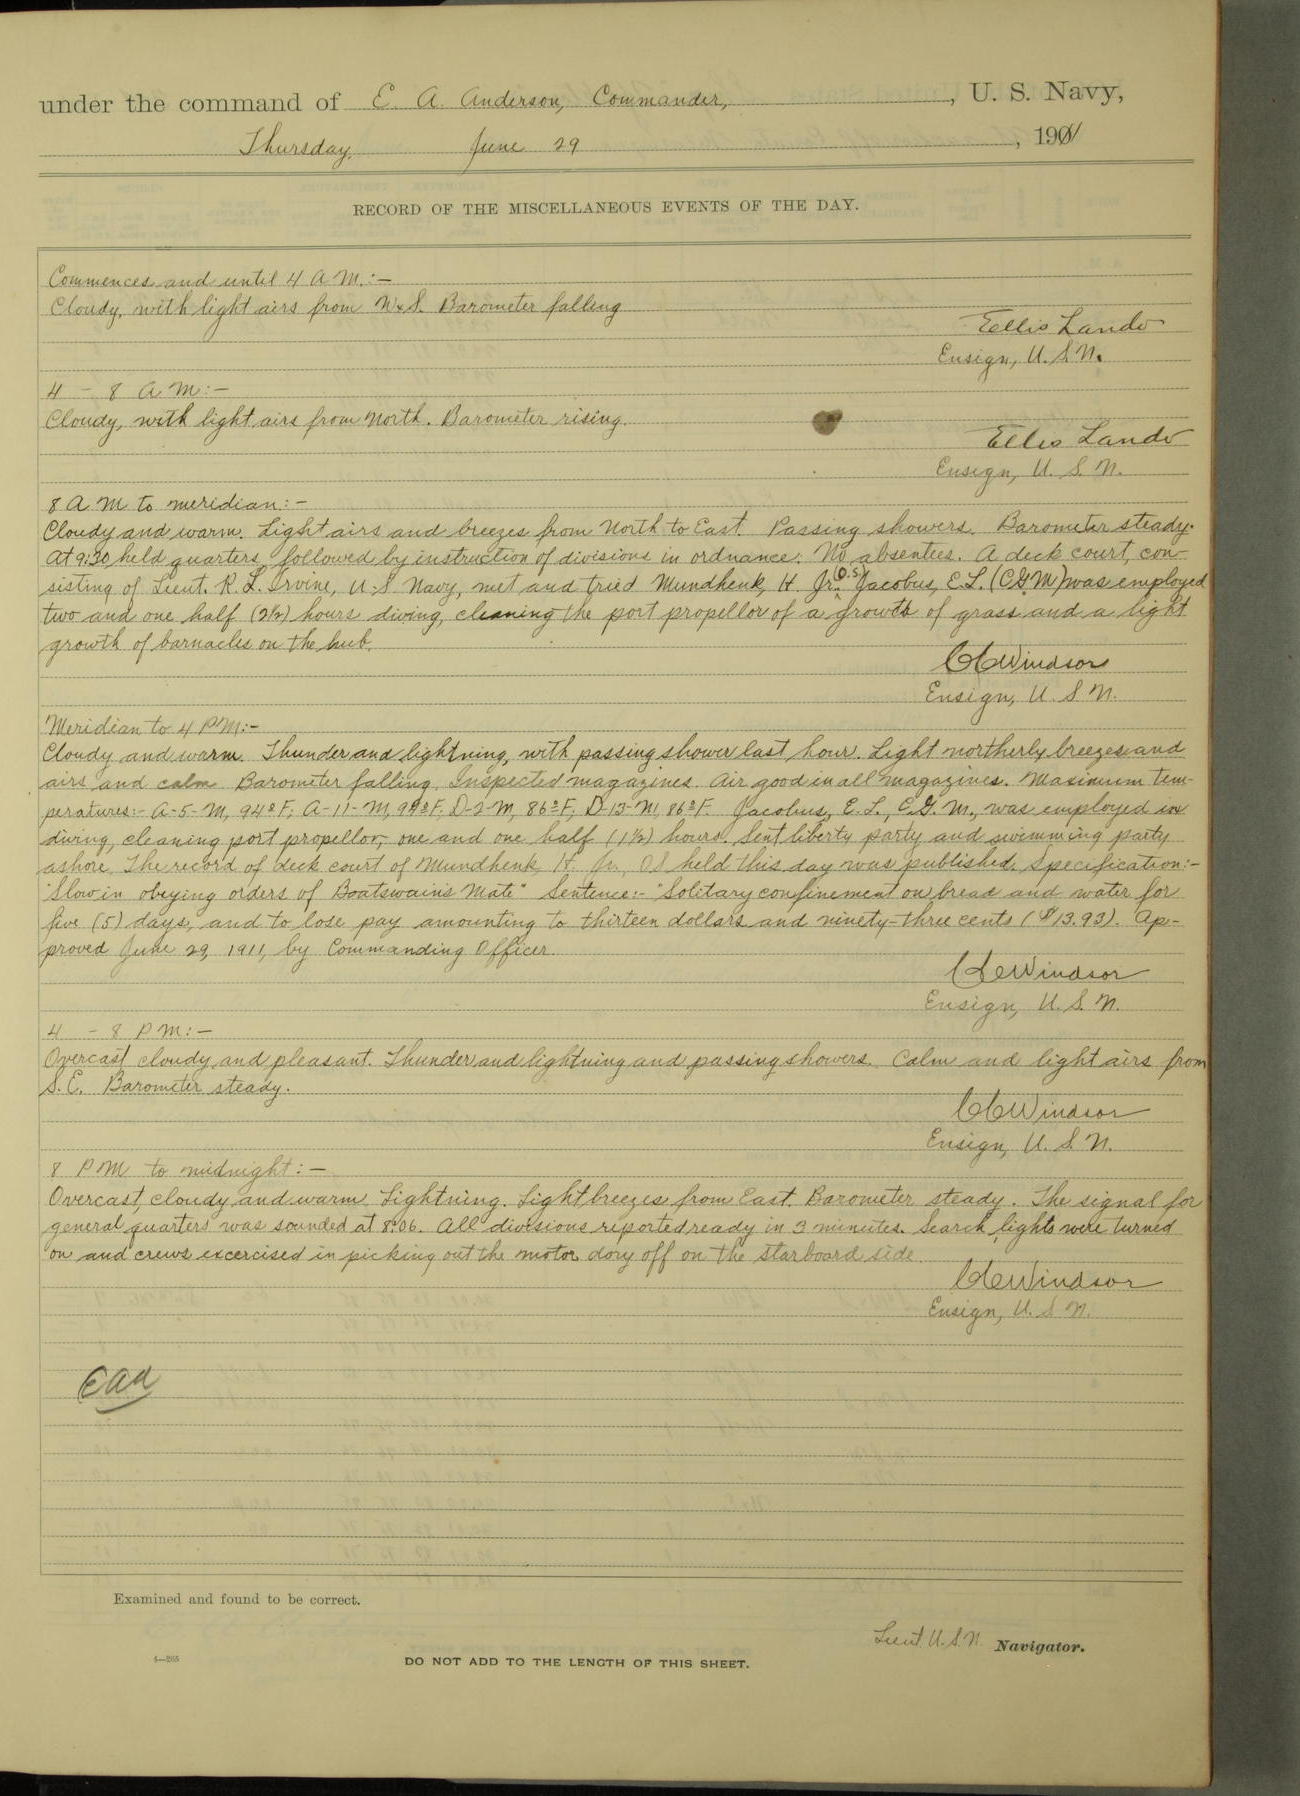 under the command of E. A. Anderson, Commander, , U. S. Navy,
Thursday, June 29 , 1911
RECORD OF THE MISCELLANEOUS EVENTS OF THE DAY.
Commences and until 4 A M.:—
Cloudy, with light airs from WxS. Barometer falling
Ellis Lando
Ensign, U. S. N.
4 - 8 A M:—
Cloudy, with light airs from North. Barometer rising.
Ellis Lando
Ensign, U. S. N.
8 A M to meridian:—
Cloudy and warm. Light airs and breezes from North to East. Passing showers. Barometer steady.
At 9:30 held quarters followed by instruction of divisions in ordnance. No absentees. A deck court, con-
sisting of Lieut. R. L. Irvine, U.S Navy, met and tried Mundhenk, H. Jr. (O.S) Jacobus, E L. (C G M) was employed
two and one half (2½) hours diving, cleaning the port propellor of a growth of grass and a light
growth of barnacles on the hub.
Windsor
Ensign, U. S N.
Meridian to 4 PM:—
Cloudy and warm. Thunder and lightning, with passing shower last hour. Light northerly breezes and
airs and calm. Barometer falling. Inspected magazines. Air good in all magazines. Maximum tem-
peratures:- A-5-M, 94° F, A-11-M, F, D-2-M, 86° F, D-13-M, 86° F. Jacobus, E. L., C. G. M., was employed in
diving, cleaning port propellor, one and one half (1½) hours. Sent liberty party and swimming party
ashore. The record of deck court of Mundhenk, H. Jr., OS held this day was published. Specification:-
"Slow in obeying orders of Boatswain's Mate" Sentence:- "Solitary confinement on bread and water for
five (5) days, and to lose pay amounting to thirteen dollars and ninety-three cents ($13.93). Ap-
proved June 29, 1911, by Commanding Officer.
Windsor
Ensign, U. S. N.
4 - 8 P M:—
Overcast, cloudy and pleasant. Thunder and lightning and passing showers. Calm and light airs from
S. E. Barometer steady.
Windsor
Ensign, U. S. N.
8 P M to midnight:—
Overcast, cloudy and warm. Lightning. Light breezes from East. Barometer steady. The signal for
general quarters was sounded at 8:06. All divisions reported ready in 3 minutes. Search lights were turned
on and crews excercised in picking out the motor dory off on the starboard side.
Windsor
Ensign, U. S. N.
EAA
Examined and found to be correct.
Lieut U.S.N. Navigator.
DO NOT ADD TO THE LENGTH OF THIS SHEET.